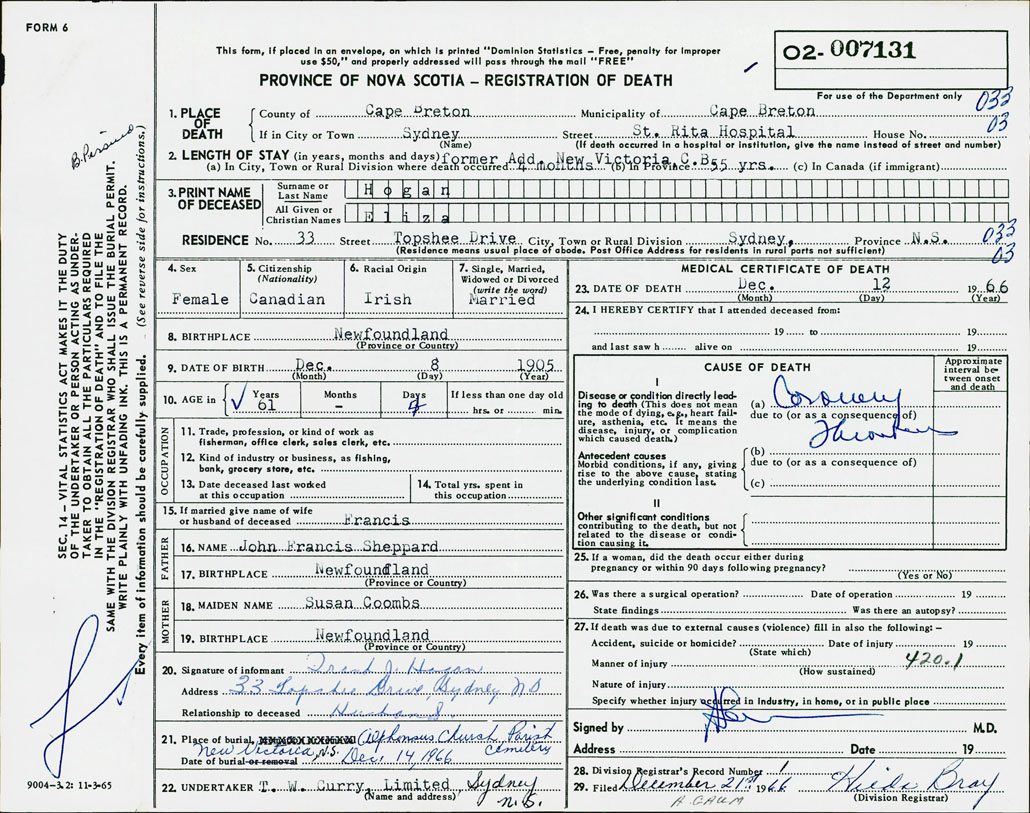 FORM 6
This form, if placed in an envelope, on which is printed "Dominion Statistics – Free, penalty for improper
use $50," and properly addressed will pass through the mail "FREE"
PROVINCE OF NOVA SCOTIA – REGISTRATION OF DEATH
02-007131
For use of the Department only
033
03
1. PLACE OF DEATH
County of Cape Breton Municipality of Cape Breton
If in City or Town Sydney Street St. Rita Hospital House No.
(Name) (If death occurred in a hospital or institution, give the name instead of street and number)
2. LENGTH OF STAY (in years, months and days) former Add. New Victoria, C.B.
(a) In City, Town or Rural Division where death occurred 4 months (b) In Province 55 yrs. (c) In Canada (if immigrant)
3. PRINT NAME OF DECEASED
Surname or Last Name Hogan
All Given or Christian Names Eliza
RESIDENCE No. 33 Street Topshee Drive City, Town or Rural Division Sydney, Province N.S.
(Residence means usual place of abode. Post Office Address for residents in rural parts not sufficient)
033
03
4. Sex
Female
5. Citizenship
(Nationality)
Canadian
6. Racial Origin
Irish
7. Single, Married, Widowed or Divorced
(write the word)
Married
8. BIRTHPLACE Newfoundland
(Province or Country)
9. DATE OF BIRTH Dec. 8 1905
(Month) (Day) (Year)
10. AGE in Years 61 Months - Days 4 If less than one day old
hrs. or min.
OCCUPATION
11. Trade, profession, or kind of work as
fisherman, office clerk, sales clerk, etc.
12. Kind of industry or business, as fishing,
bank, grocery store, etc.
13. Date deceased last worked
at this occupation
14. Total yrs. spent in
this occupation
15. If married give name of wife
or husband of deceased Francis
FATHER
16. NAME John Francis Sheppard
17. BIRTHPLACE Newfoundland
(Province or Country)
MOTHER
18. MAIDEN NAME Susan Coombs
19. BIRTHPLACE Newfoundland
(Province or Country)
20. Signature of informant Frank J. Hogan
Address 33 Topshee Drive, Sydney, N.S.
Relationship to deceased Husband
21. Place of burial, Alphonsus Church Parish
New Victoria, N.S. Cemetery
Date of burial or removal Dec. 14, 1966
22. UNDERTAKER T. W. Curry, Limited, Sydney
(Name and address) N.S.
MEDICAL CERTIFICATE OF DEATH
23. DATE OF DEATH Dec. 12 1966
(Month) (Day) (Year)
24. I HEREBY CERTIFY that I attended deceased from:
19 to 19
and last saw h alive on 19
CAUSE OF DEATH
Approximate interval between onset and death
I
Disease or condition directly leading to death (This does not mean
the mode of dying, e.g., heart failure, asthenia, etc. It means the
disease, injury, or complication
which caused death.)
(a) Coronary
due to (or as a consequence of)
Thrombosis
Antecedent causes
Morbid conditions, if any, giving
rise to the above cause, stating
the underlying condition last.
(b)
due to (or as a consequence of)
(c)
II
Other significant conditions
contributing to the death, but not
related to the disease or condition causing it.
25. If a woman, did the death occur either during
pregnancy or within 90 days following pregnancy?
(Yes or No)
26. Was there a surgical operation? Date of operation 19
State findings Was there an autopsy?
27. If death was due to external causes (violence) fill in also the following: –
Accident, suicide or homicide? Date of injury 19
(State which)
Manner of injury 420.1
(How sustained)
Nature of injury
Specify whether injury occurred in Industry, in home, or in public place
Signed by M.D.
Address Date 19
28. Division Registrar's Record Number 1
29. Filed December 21st 1966 Hilda Bray
(Division Registrar)
SEC. 14 – VITAL STATISTICS ACT MAKES IT THE DUTY
OF THE UNDERTAKER OR PERSON ACTING AS UNDER-
TAKER TO OBTAIN ALL THE PARTICULARS REQUIRED
IN THE "REGISTRATION OF DEATH" AND TO FILE THE
SAME WITH THE DIVISION REGISTRAR WHO SHALL ISSUE THE BURIAL PERMIT.
WRITE PLAINLY WITH UNFADING INK. THIS IS A PERMANENT RECORD.
Every item of information should be carefully supplied. (See reverse side for instructions.)
9004-3.2: 11-3-65